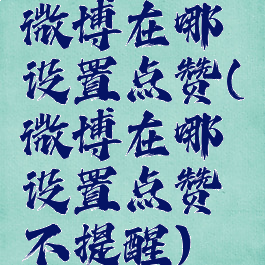 微博在哪
设置点赞(
微博在哪
设置点赞
不提醒)